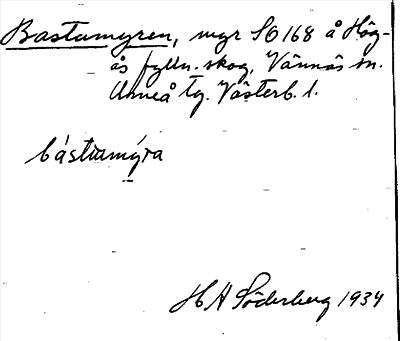 Bastumyren, myr SO 168 å Hög-
ås fylln. skog, Vännäs sn.
Umeå tg. Västerb. l.
bástumýra
H A Söderberg 1934